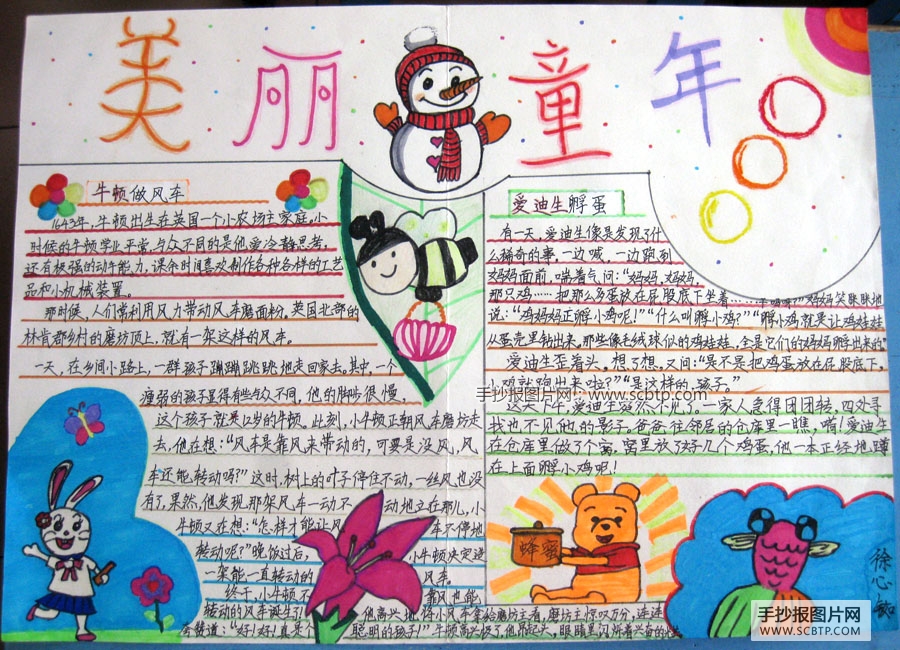 美丽童年
牛顿做风车
1643年,牛顿出生在英国一个小农场主家庭。小
时候的牛顿学业平常,与众不同的是他爱冷静思考,
还有极强的动手能力,课余时间喜欢制作各种各样的工艺
品和小机械装置。
那时候,人们常利用风力带动风车磨面粉,英国北部的
林肯郡乡村的磨坊顶上,就有一架这样的风车。
一天,在乡间小路上,一群孩子蹦蹦跳跳地走回家去。其中,一个
瘦弱的孩子显得有些与众不同,他的脚步很慢,
这个孩子就是12岁的牛顿。此刻,小牛顿正朝风车磨坊走
去,他在想:“风车是靠风来带动的,可要是没风,风
车还能转动吗?”这时,树上的叶子停住不动,一丝风也没
有了,果然,他发现那架风车一动不动地立在那儿,小
牛顿又在想:“怎样才能让风车不停地
转动呢?”晚饭过后,小牛顿决定造
一架能一直转动的风车。
终于,小牛顿不靠风也能
转动的风车诞生了!他高兴地将小风车拿给磨坊主看,磨坊主惊叹万分,连连
夸赞道:“好!好!真是个聪明的孩子!”牛顿高兴极了他昂起头,眼睛里闪烁着兴奋的
爱迪生孵蛋
有一天,爱迪生像是发现了什
么稀奇的事,一边喊,一边跑到
妈妈面前,喘着气问:“妈妈,妈妈,
那只鸡……把那么多蛋放在屁股底下坐着……妈妈笑眯眯地
说:“妈妈妈正孵小鸡呢!”“什么叫孵小鸡?”“孵小鸡就是让鸡娃娃
从蛋壳里钻出来,那些像毛绒球似的鸡娃娃,全是它们的妈妈孵出来的”
爱迪生歪着头,想了想,又问:“是不是把鸡蛋放在屁股底下,
小鸡就跑出来啦?”“是这样的,孩子。”
这天下午,爱迪生忽然不见了。一家人急得团团转,四处寻
找也不见他的影子,爸爸往邻居的仓库里一瞧,嗬!爱迪生
在仓库里做了个窝,窝里放了好几个鸡蛋,他一本正经地蹲
在上面孵小鸡呢!
手抄报图片网:www.scbtp.com
蜂蜜
徐心敏
手抄报图片网
WWW.SCBTP.COM